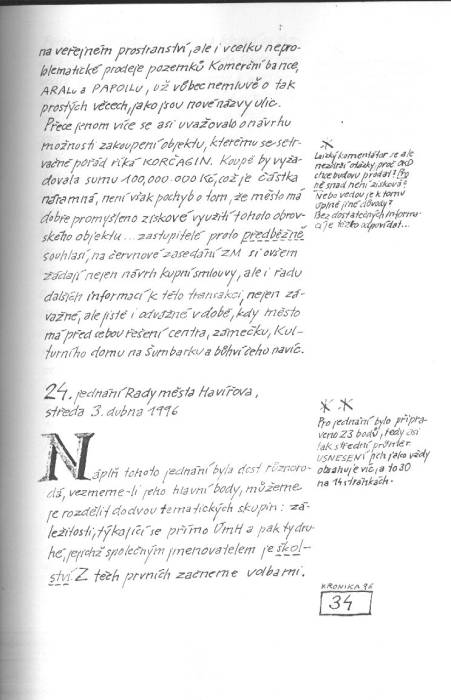 na veřejném prostranství, ale i vcelku nepro-
blematické prodeje pozemků Komerční bance,
ARALu a PAPOILU, už vůbec nemluvě o tak
prostých věcech, jako jsou nové názvy ulic.
Přece jenom více se asi uvažovalo o návrhu
možnosti zakoupení objektu, kterému se setr-
vačně pořád říká KORČAGIN. Koupě by vyža-
dovala sumu 100,000.000 Kč, což je částka
náramná, není však pochyb o tom, že město má
dobře promyšleno ziskové využití tohoto obrov-
ského objektu... zastupitelé proto předběžně
souhlasí, na červnové zasedání ZM si ovšem
žádají nejen návrh kupní smlouvy, ale i řadu
dalších informací k této transakci, nejen zá-
važné, ale jistě i odvážné v době, kdy město
má před sebou řešení centra, zámečku, Kul-
turního domu na Šumbarku a bůhví čeho navíc.
*
Laický komentátor se ale
nezbaví otázky, proč OKD
chce budovu prodat? Pro
ně snad není zisková?
Nebo vedou je k tomu
úplně jiné důvody?
Bez dostatečných informa-
cí je těžko odpovídat...
24. jednání Rady města Havířova,
středa 3. dubna 1996
Náplň tohoto jednání byla dost různoro-
dá, vezmeme-li jeho hlavní body, můžeme
je rozdělit do dvou tematických skupin: zá-
ležitosti, týkající se přímo ÚmH a pak ty dru-
hé, jejichž společným jmenovatelem je škol-
ství. Z těch prvních začneme volbami.
* *
Pro jednání bylo připra-
veno 23 bodů, tedy asi
tak střední průměr
USNESENÍ pch jako vždy
obsahuje víc, a to 30
na 14 stránkách.
KRONIKA 96
34